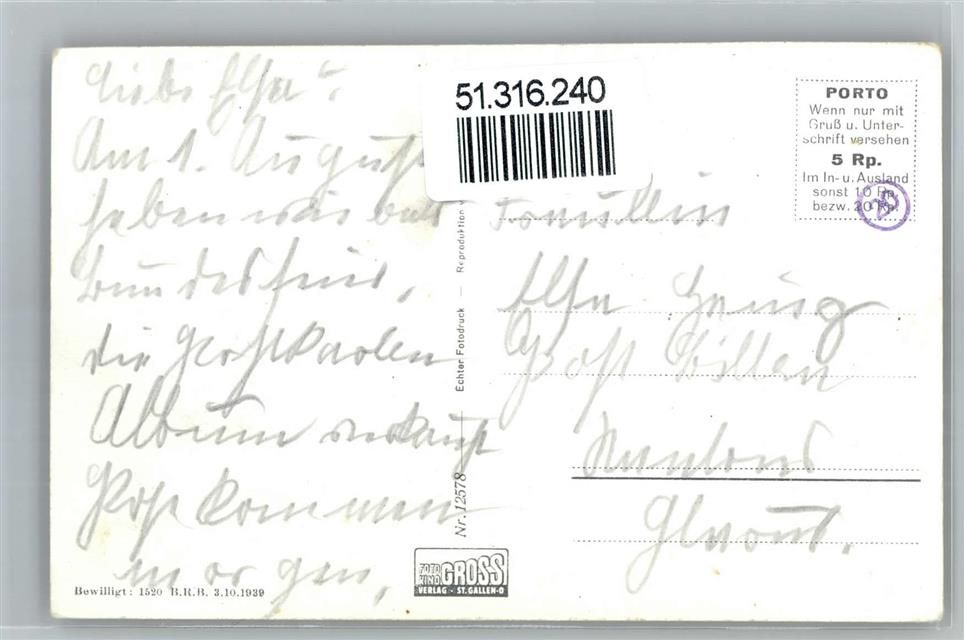 Liebe Elsa
51.316.240
Am 1. August
haben wir
Bundesfeier,
die Postkarten
Album verkauft
Post kommen
morgen,
Bewilligt: 1520 B.R.B. 3.10.1939
Nr. 12578 — Echter Fotodruck — Reproduktion
FOTO KINO GROSS
VERLAG - ST. GALLEN-O
PORTO
Wenn nur mit
Gruß u. Unter-
schrift versehen
5 Rp.
Im In- u. Ausland
sonst 10 Rp.
bezw. 20 Rp.
Fräulein
Elsa
Post
Kantons
Glarus.